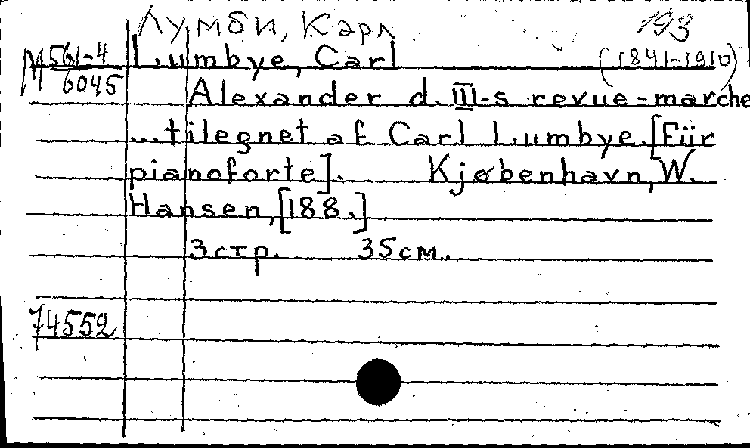 Лумби, Карл 193
М 561-4 Lumbye, Carl (1841-1910)
6045 Alexander d. III-s revue-marche
...tilegnet af Carl Lumbye. [Für
pianoforte]. Kjøbenhavn, W.
Hansen, [188.]
3 стр. 35 см.
74552